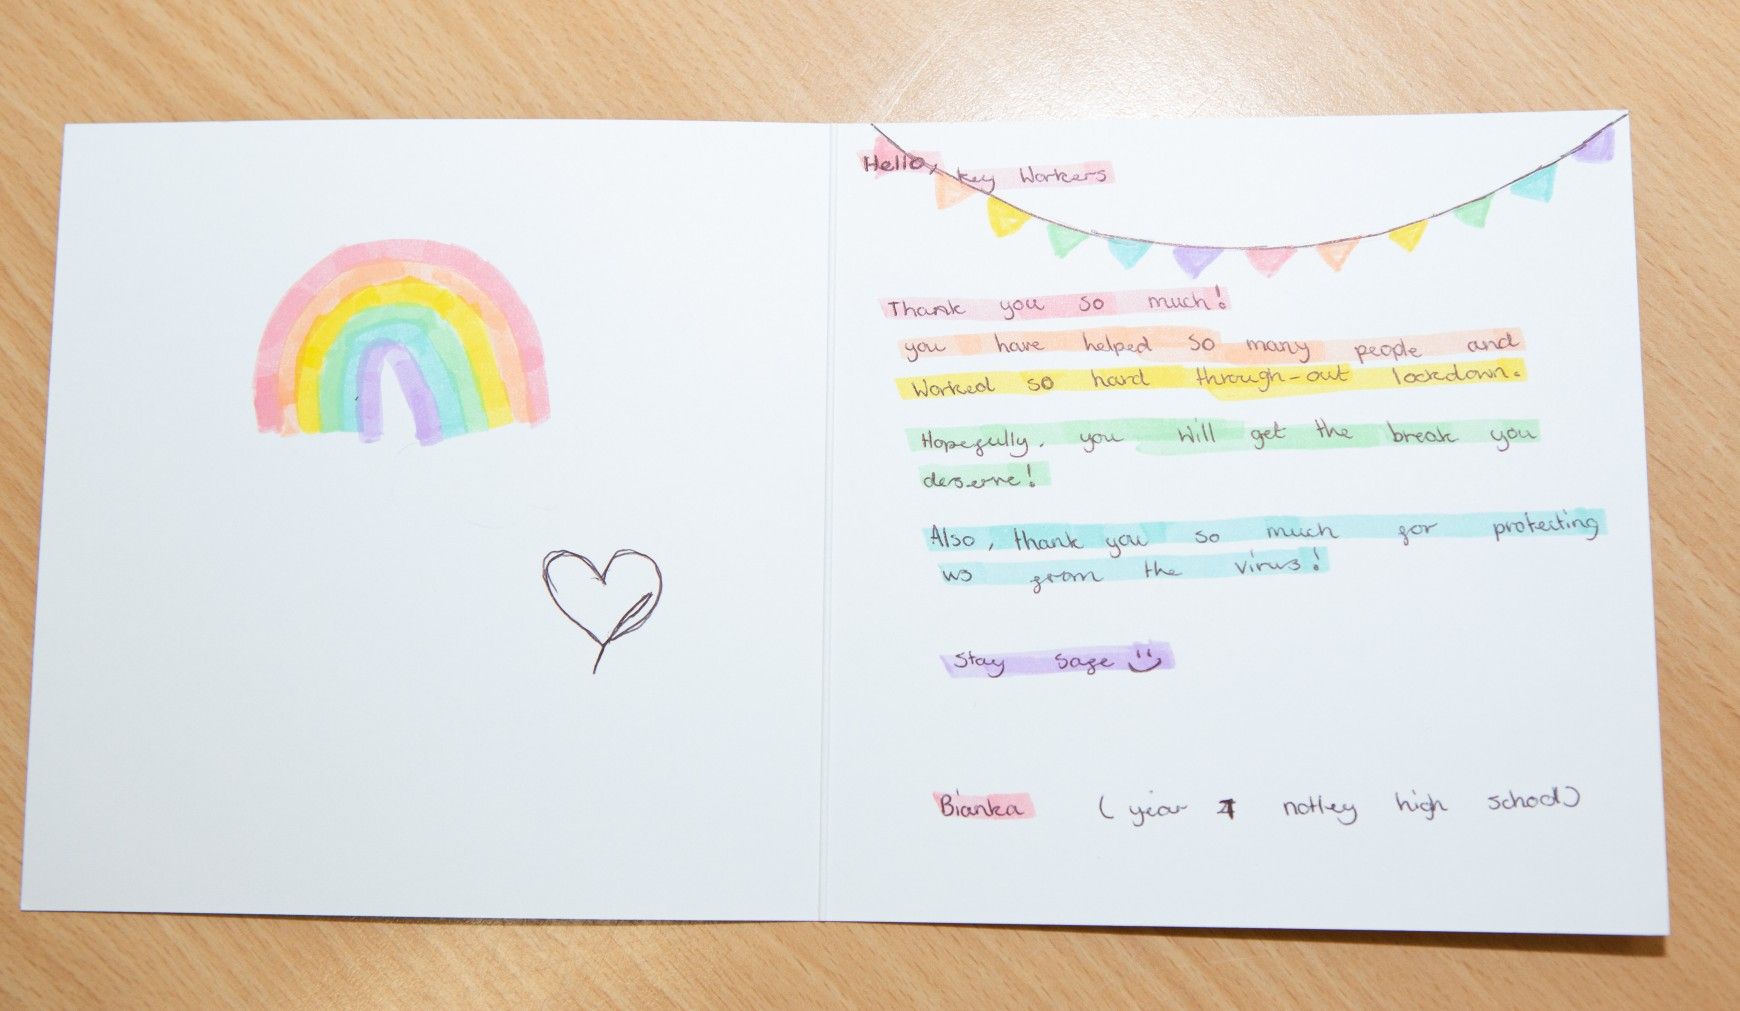 Hello, key Workers
Thank you so much!
you have helped so many people and
Worked so hard through-out lockdown.
Hopefully, you will get the break you
deserve!
Also, thank you so much for protecting
us from the virus!
Stay safe
Bianka (year 7 notley high school)